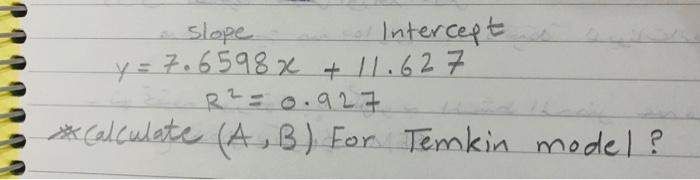 slope Intercept
y = 7.6598x + 11.627
R² = 0.927
*calculate (A, B) For Temkin model?